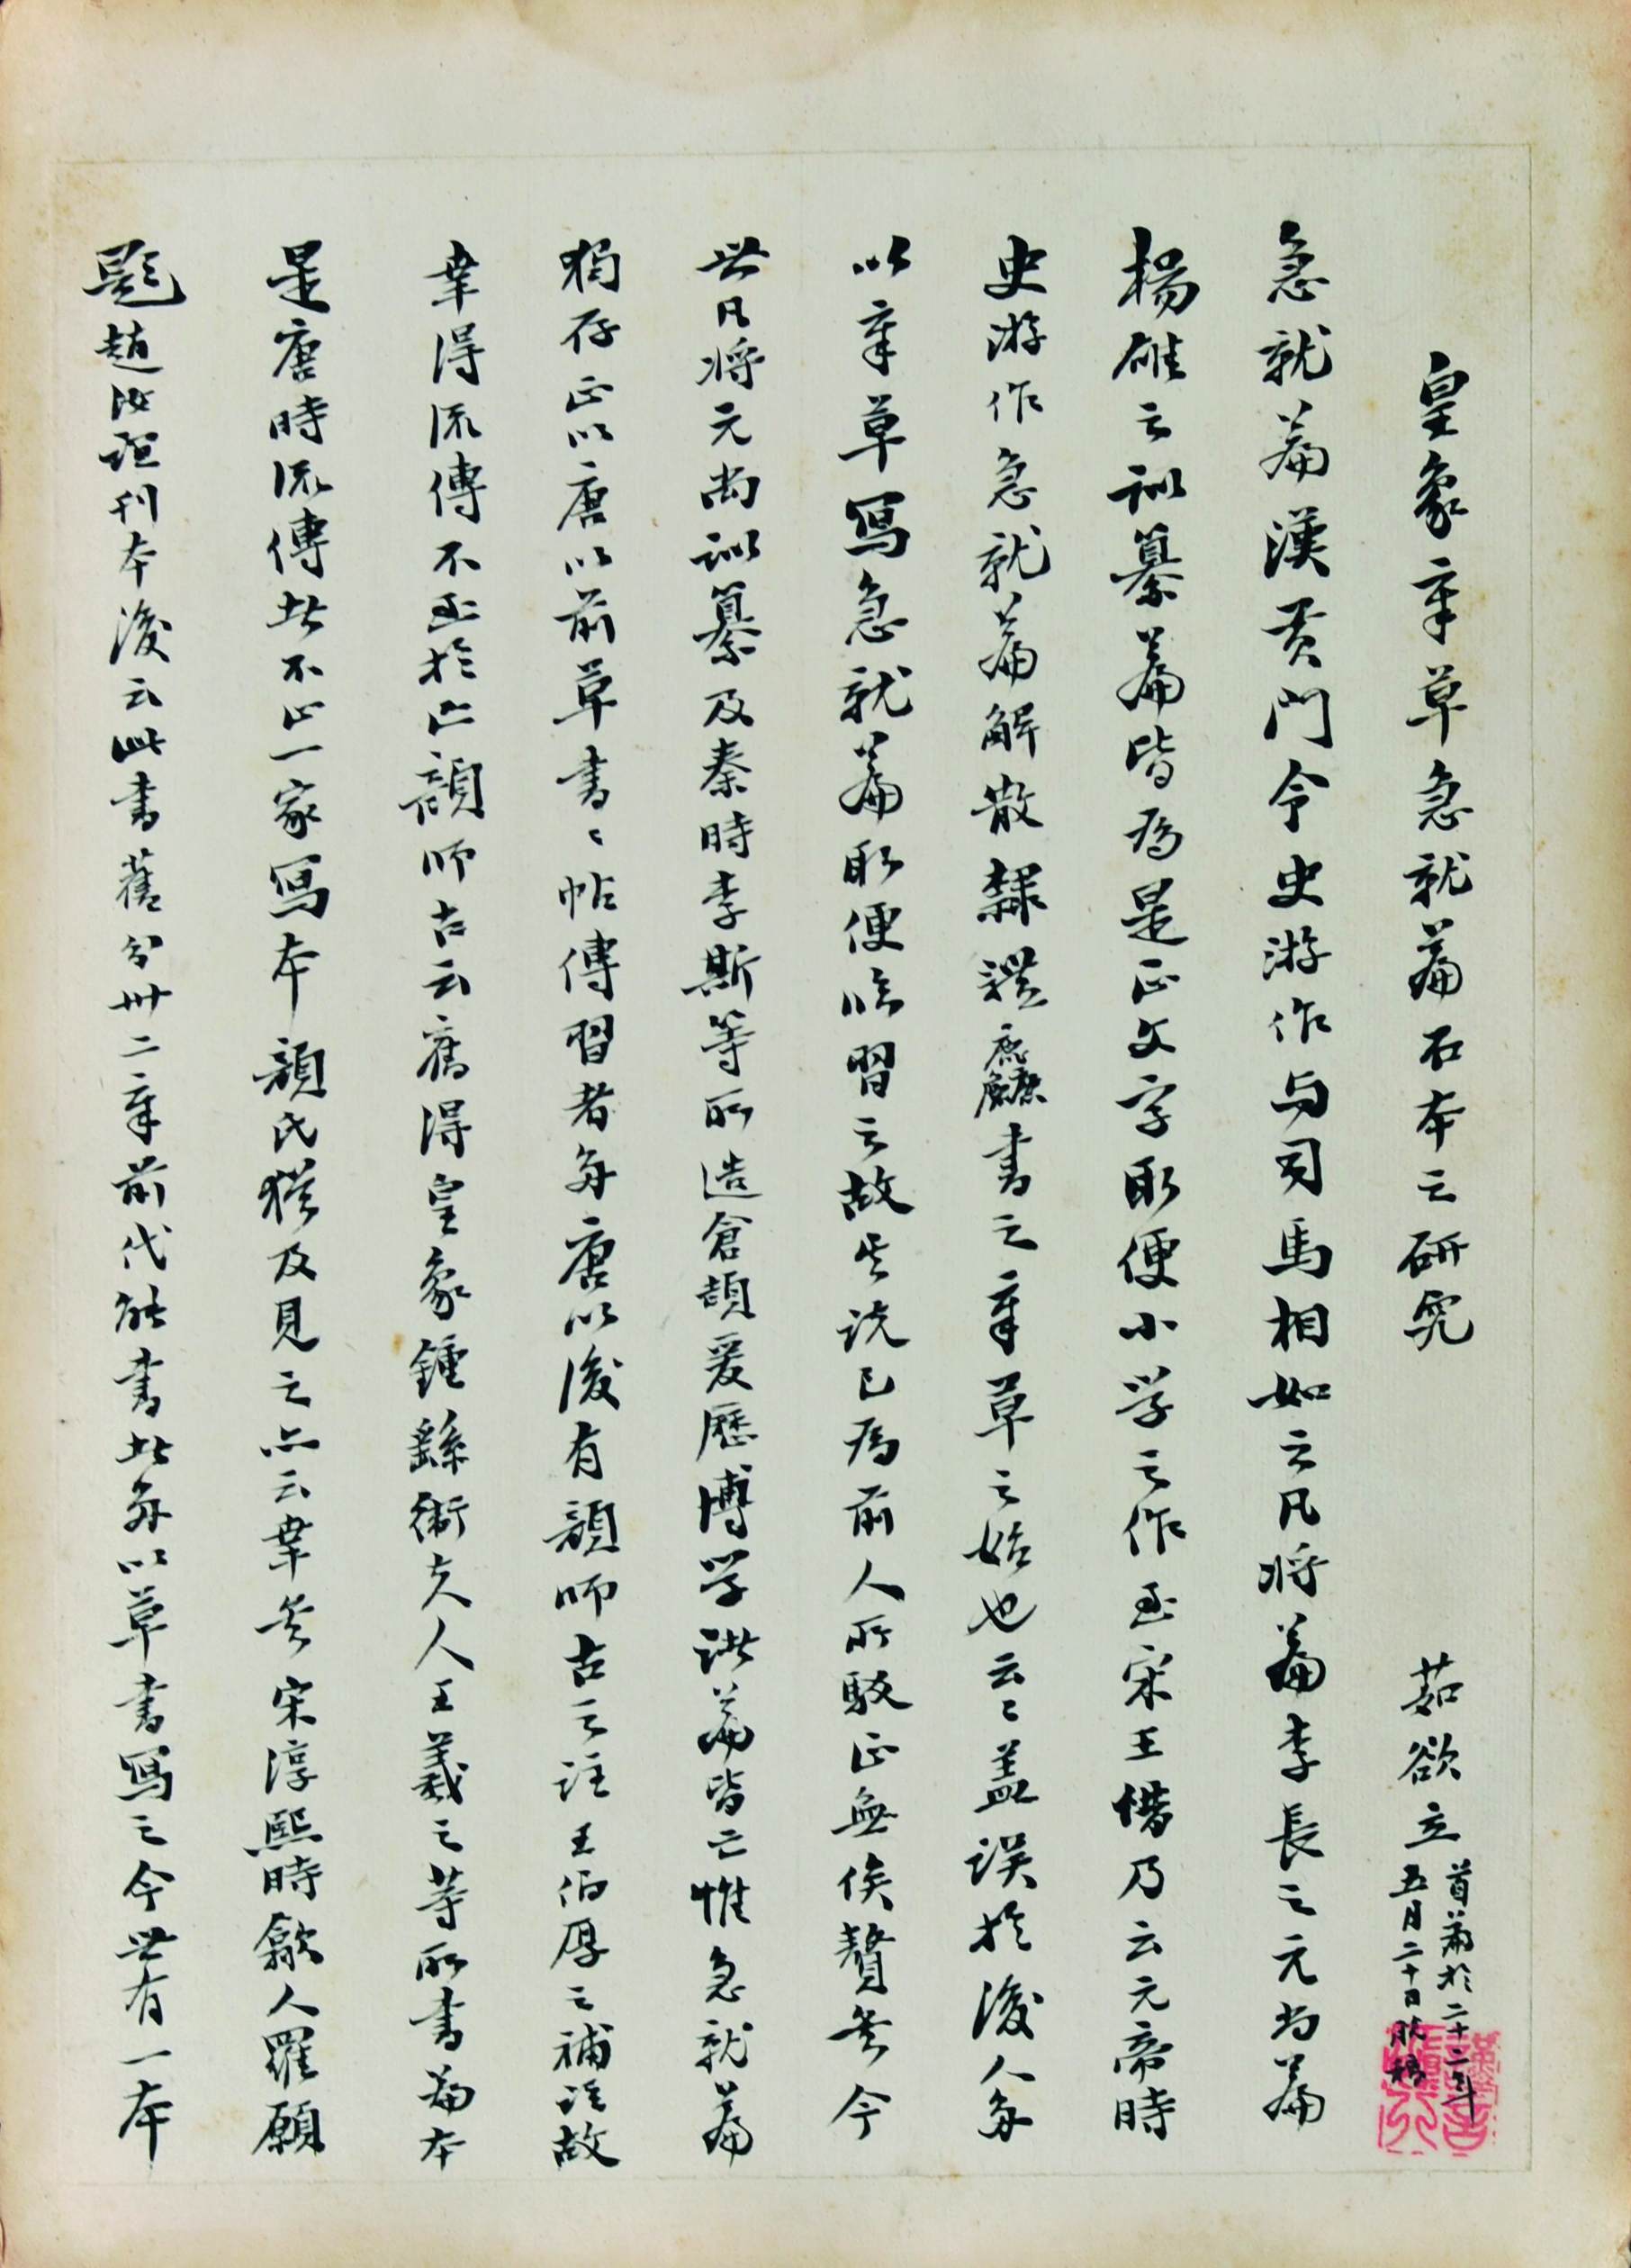 皇象章草急就篇石本之研究 茹欲立 首篇於二十二年五月二十日脱稿
急就篇漢黄門令史游作与司馬相如之凡将篇李長之元尚篇
楊雄之訓纂篇皆為是正文字取便小学之作至宋王愔乃云元帝時
史游作急就篇解散隸體麤書之章草之始也云〻盖误於後人多
以章草寫急就篇取便临習之故其说已為前人所駁正無俟贅矣今
世凡将元尚訓纂及秦時李斯等所造倉頡爰歷博学諸篇皆亡惟急就篇
獨存正以唐以前草書〻帖傳習者多唐以後有顔師古之註王伯厚之補註故
幸得流傳不至於亡顔師古云舊得皇象鍾繇衛夫人王羲之等所書篇本
是唐時流傳者不止一家寫本顔氏猶及見之亦云幸矣宋淳熙時歙人羅願
題趙汝誼刊本後云此書舊分卅二章前代能書者多以草書寫之今世有一本